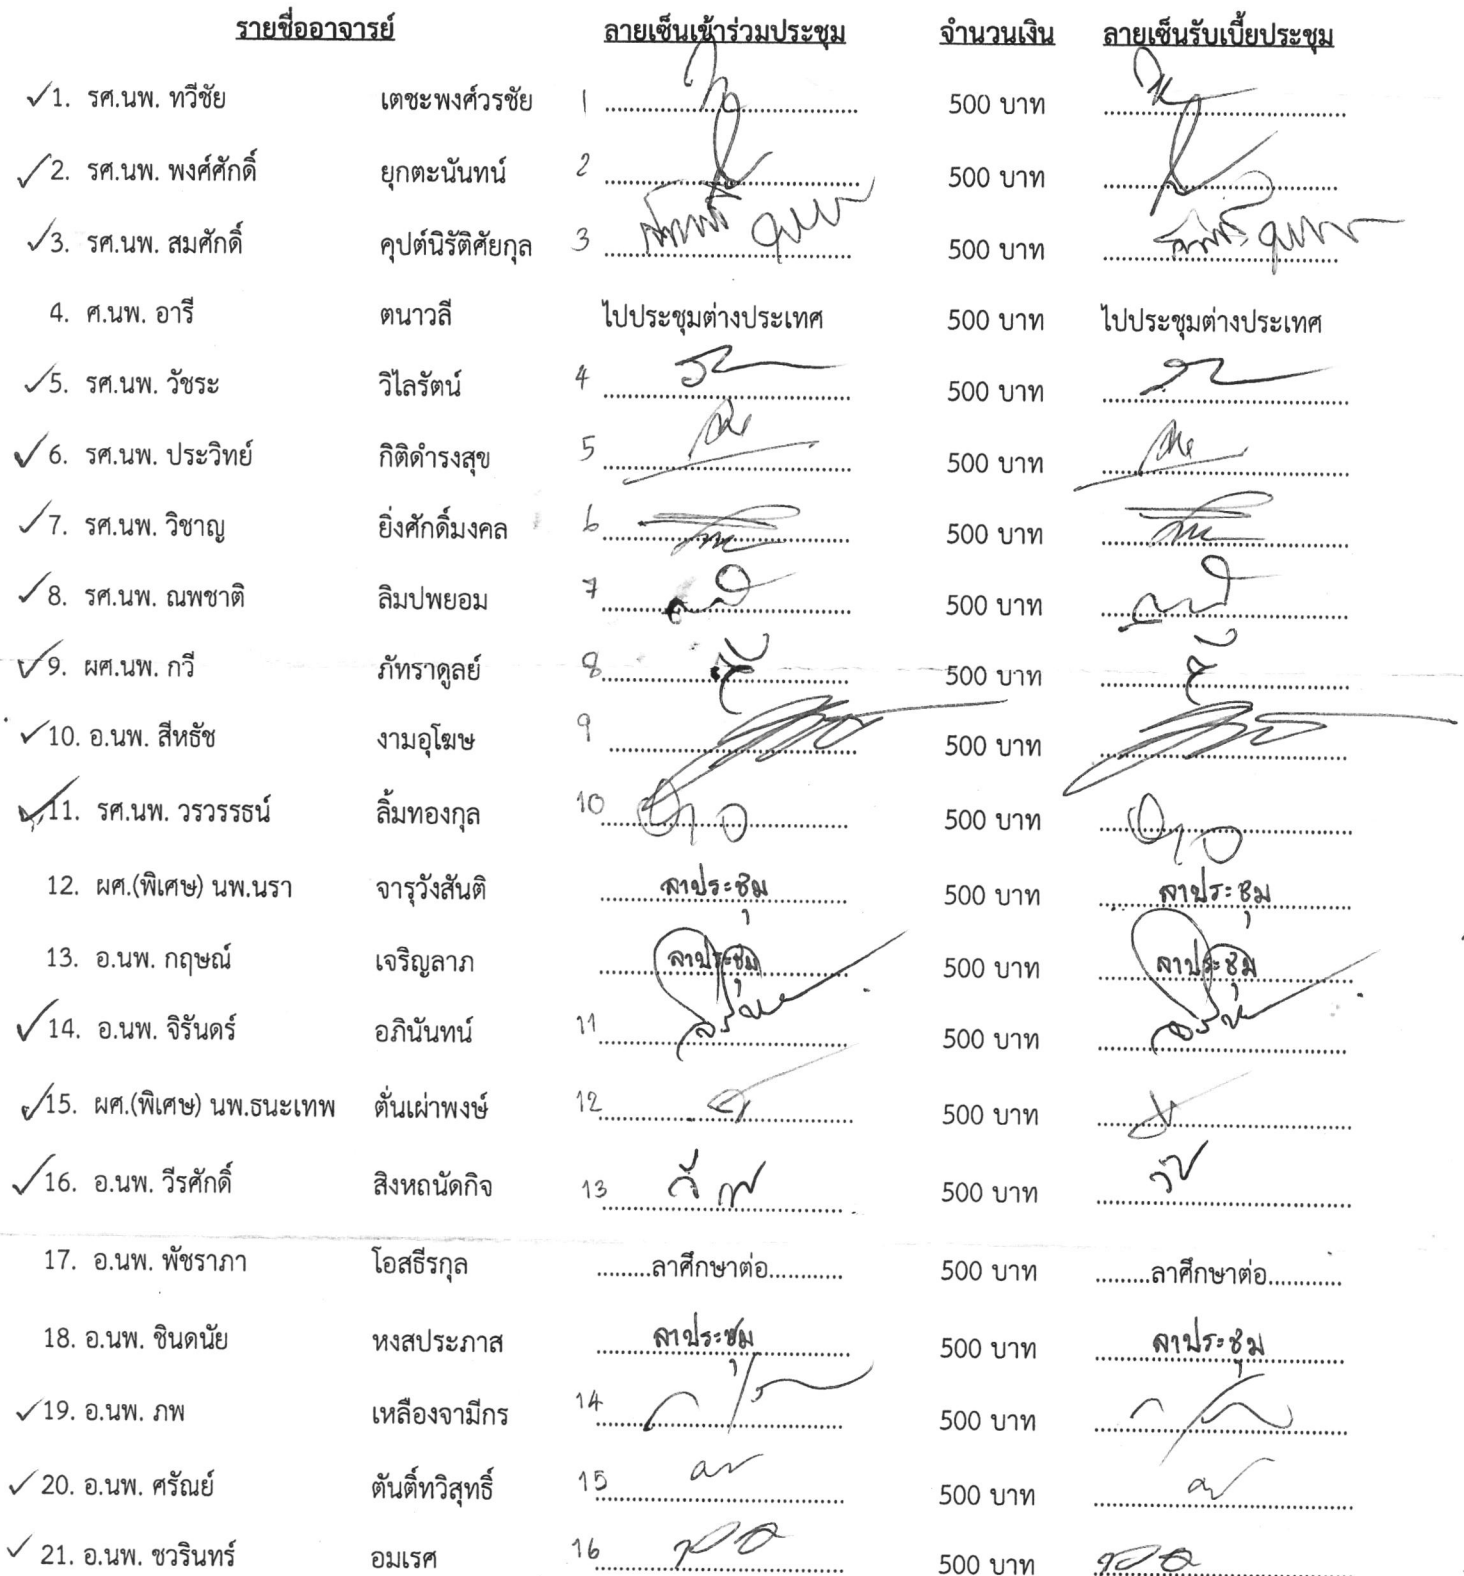 รายชื่ออาจารย์ ลายเซ็นเข้าร่วมประชุม จำนวนเงิน ลายเซ็นรับเบี้ยประชุม
✓1. รศ.นพ. ทวีชัย เตชะพงศ์วรชัย 1 500 บาท
✓2. รศ.นพ. พงศ์ศักดิ์ ยุกตะนันทน์ 2 500 บาท
✓3. รศ.นพ. สมศักดิ์ คุปต์นิรัติศัยกุล 3 500 บาท
4. ศ.นพ. อารี ตนาวลี ไปประชุมต่างประเทศ 500 บาท ไปประชุมต่างประเทศ
✓5. รศ.นพ. วัชระ วิไลรัตน์ 4 500 บาท
✓6. รศ.นพ. ประวิทย์ กิติดำรงสุข 5 500 บาท
✓7. รศ.นพ. วิชาญ ยิ่งศักดิ์มงคล 6 500 บาท
✓8. รศ.นพ. ณพชาติ ลิมปพยอม 7 500 บาท
✓9. ผศ.นพ. กวี ภัทราดูลย์ 8 500 บาท
✓10. อ.นพ. สีหธัช งามอุโฆษ 9 500 บาท
✓11. รศ.นพ. วรวรรธน์ ลิ้มทองกุล 10 500 บาท
12. ผศ.(พิเศษ) นพ.นรา จารุวังสันติ ลาประชุม 500 บาท ลาประชุม
13. อ.นพ. กฤษณ์ เจริญลาภ ลาประชุม 500 บาท ลาประชุม
✓14. อ.นพ. จิรันดร์ อภินันทน์ 11 500 บาท
✓15. ผศ.(พิเศษ) นพ.ธนะเทพ ตั่นเผ่าพงษ์ 12 500 บาท
✓16. อ.นพ. วีรศักดิ์ สิงหถนัดกิจ 13 500 บาท
17. อ.นพ. พัชราภา โอสธีรกุล .........ลาศึกษาต่อ............ 500 บาท .........ลาศึกษาต่อ............
18. อ.นพ. ชินดนัย หงสประภาส ลาประชุม 500 บาท ลาประชุม
✓19. อ.นพ. ภพ เหลืองจามีกร 14 500 บาท
✓20. อ.นพ. ศรัณย์ ตันติ์ทวิสุทธิ์ 15 500 บาท
✓21. อ.นพ. ชวรินทร์ อมเรศ 16 500 บาท